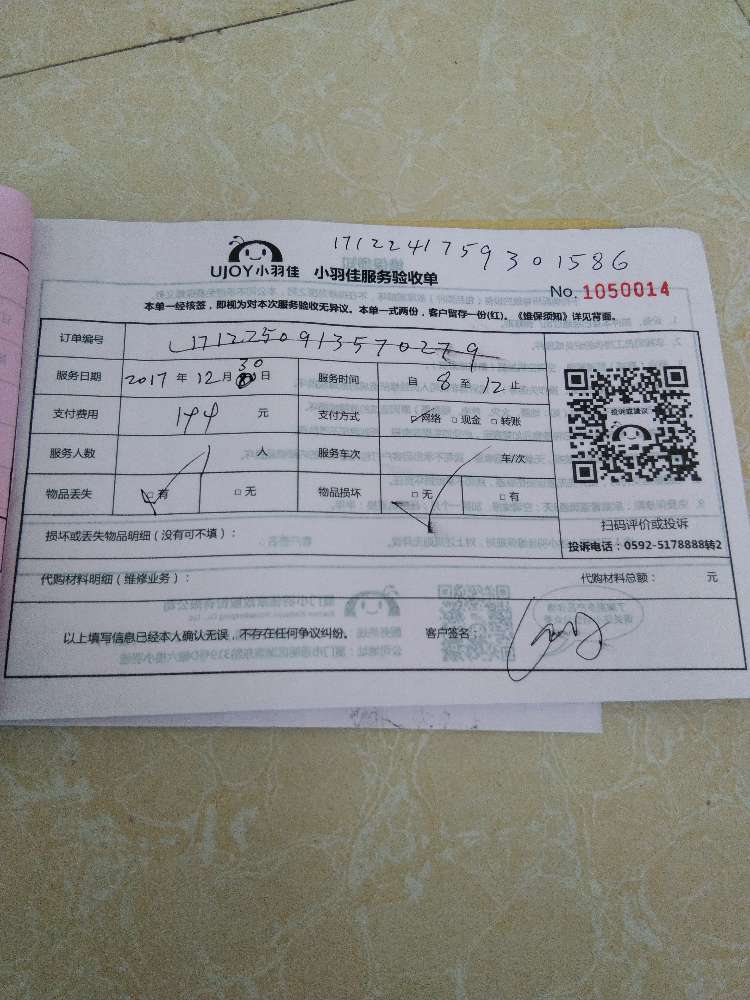 1712241759301586
UJOY小羽佳 小羽佳服务验收单
No. 1050014
本单一经核签，即视为对本次服务验收无异议。本单一式两份，客户留存一份(红)。《维保须知》详见背面。
订单编号 17122509135570279
服务日期 2017 年 12 月 30 日 服务时间 自 8 至 12 止
支付费用 144 元 支付方式 ☑网络 □现金 □转账
投诉或建议
服务人数 1 人 服务车次 车/次
物品丢失 □有 □无 物品损坏 □无 □有
扫码评价或投诉
损坏或丢失物品明细（没有可不填）：
投诉电话：0592-5178888转2
代购材料明细（维修业务）： 代购材料总额： 元
以上填写信息已经本人确认无误，不存在任何争议纠纷。 客户签名：